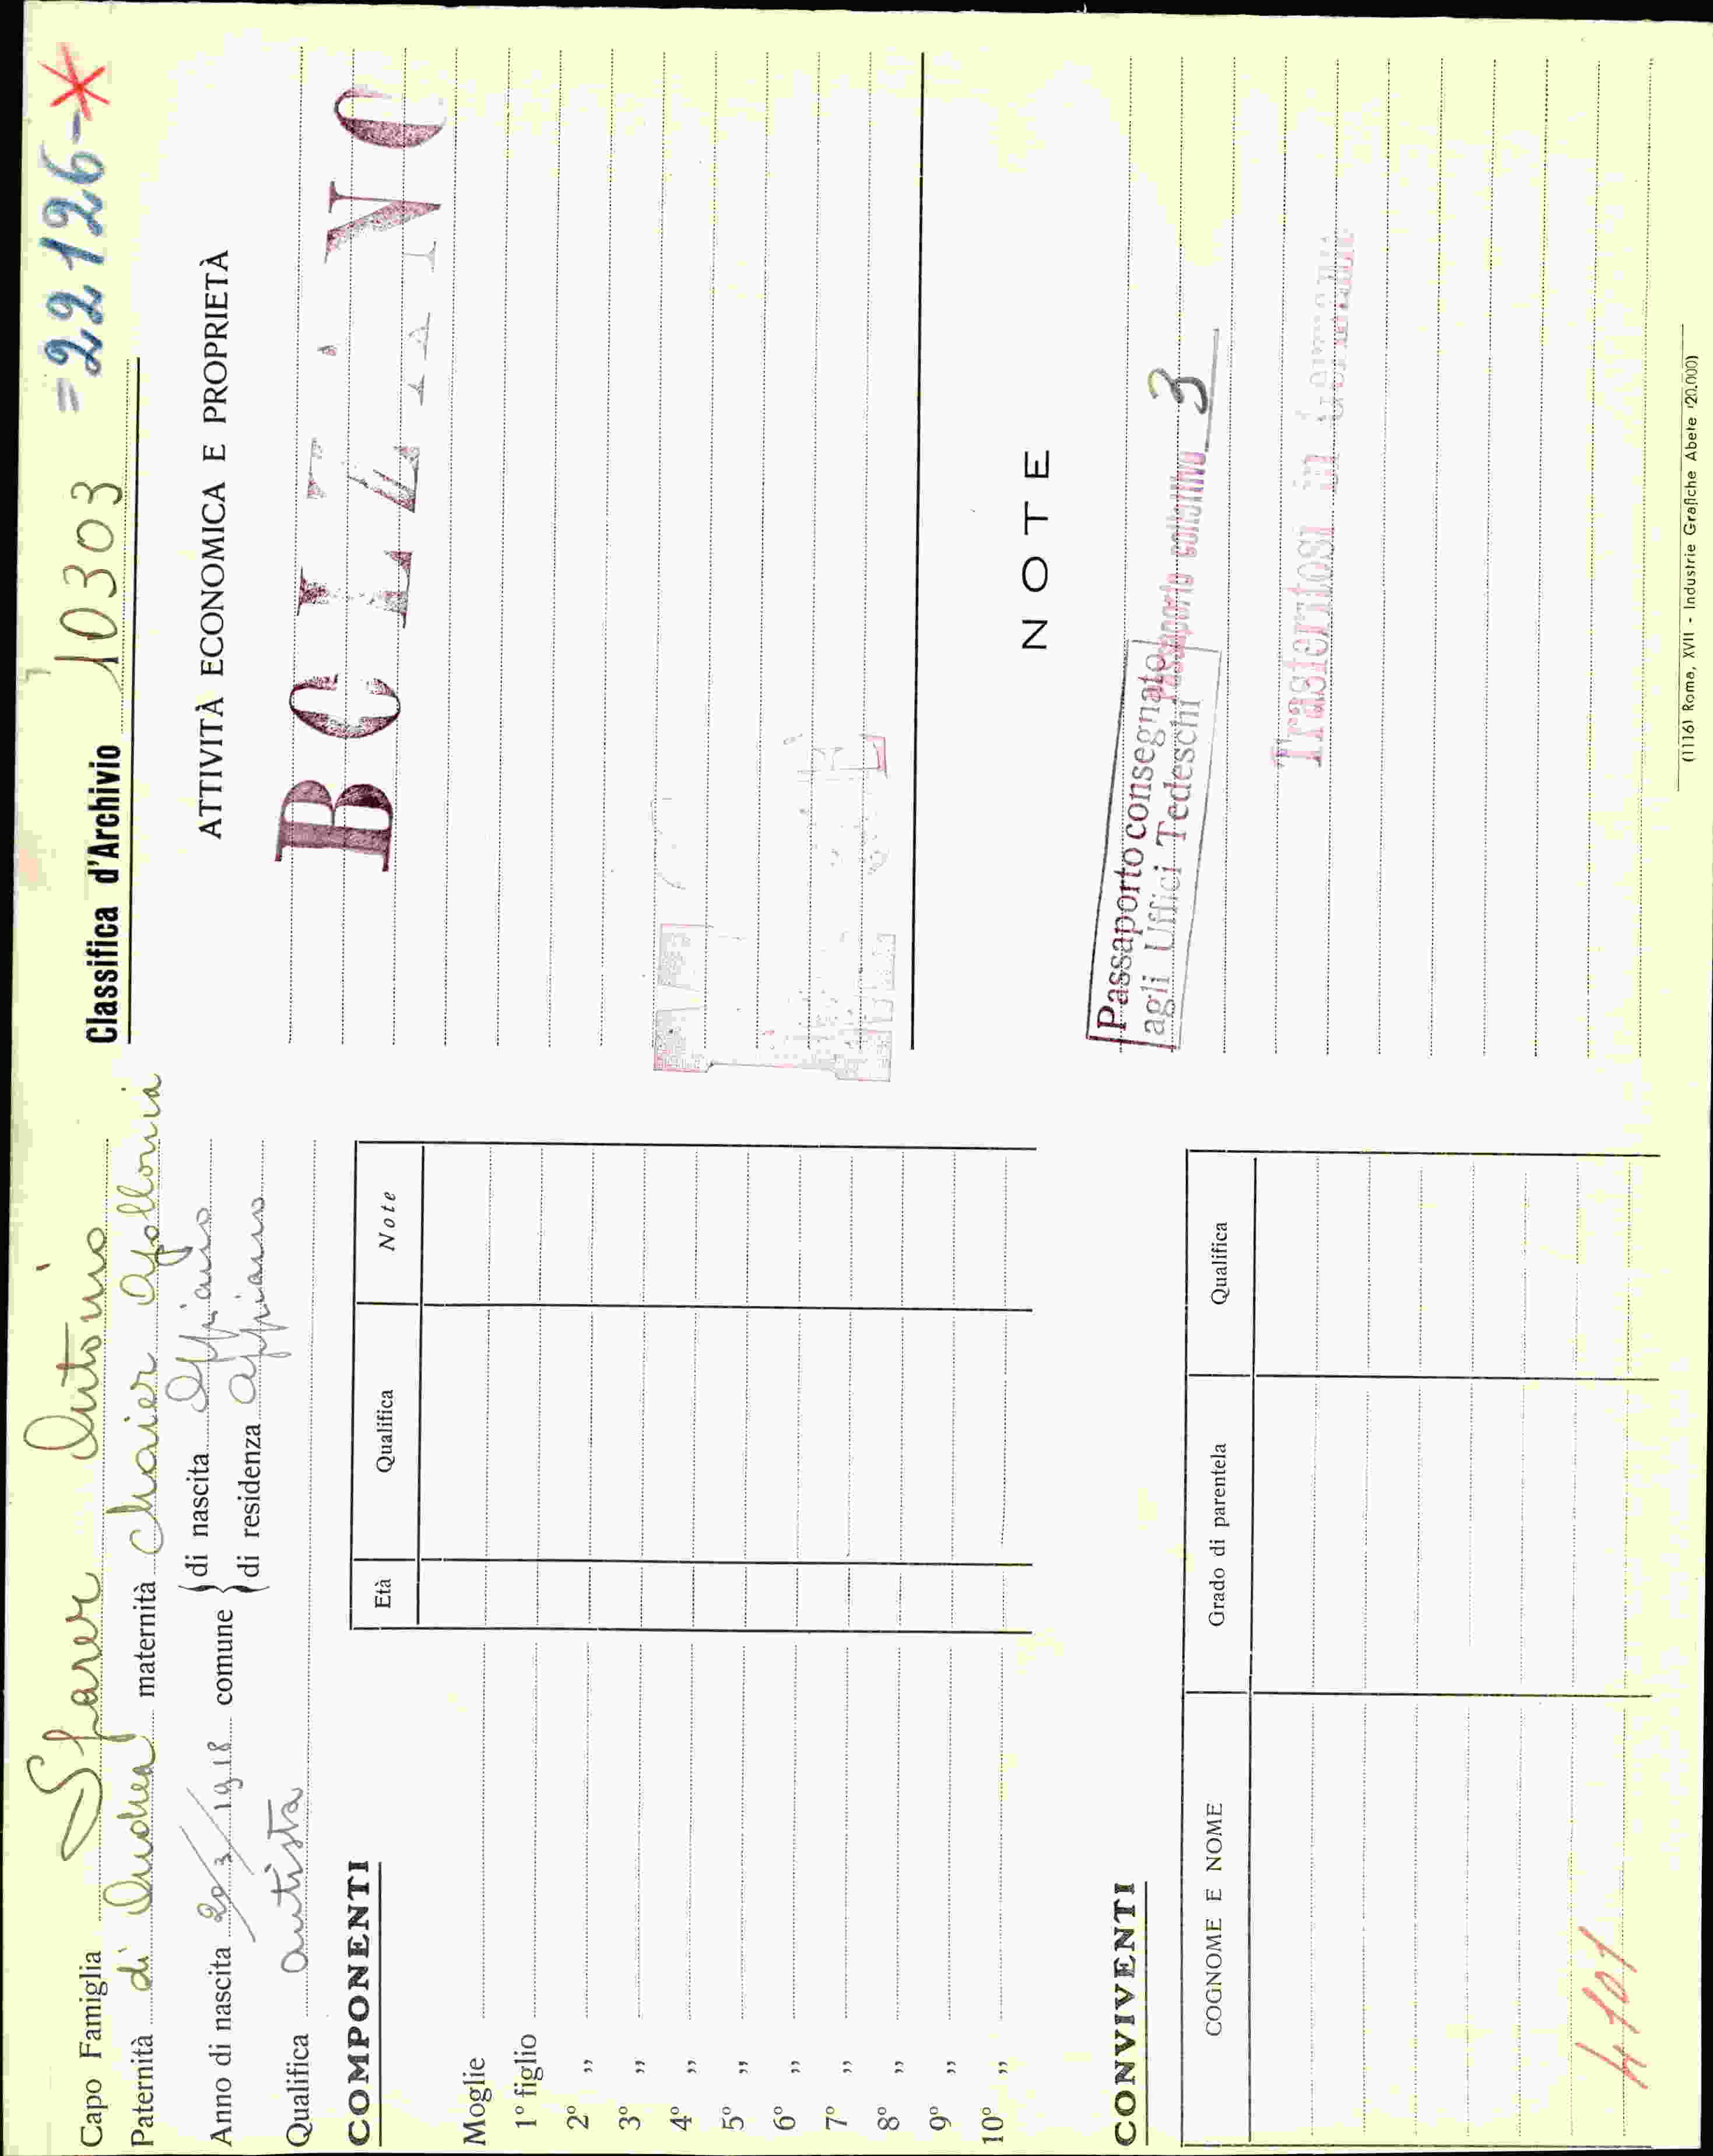 Capo Famiglia Sparer Antonio
Paternità di Andrea maternità Maier Apollonia
Anno di nascita 20/3/1918 comune } di nascita Appiano
di residenza Appiano
Qualifica autista
COMPONENTI
Età Qualifica Note
Moglie
1º figlio
2º „
3º „
4º „
5º „
6º „
7º „
8º „
9º „
10º „
CONVIVENTI
COGNOME E NOME Grado di parentela Qualifica
4101
Classifica d'Archivio 10303 =22126-*
ATTIVITÀ ECONOMICA E PROPRIETÀ
BOLZANO
NOTE
Passaporto consegnato
agli Uffici Tedeschi
Passaporto collettivo 3
Trasferitosi in Germania
(11161 Roma, XVII - Industrie Grafiche Abete (20.000)